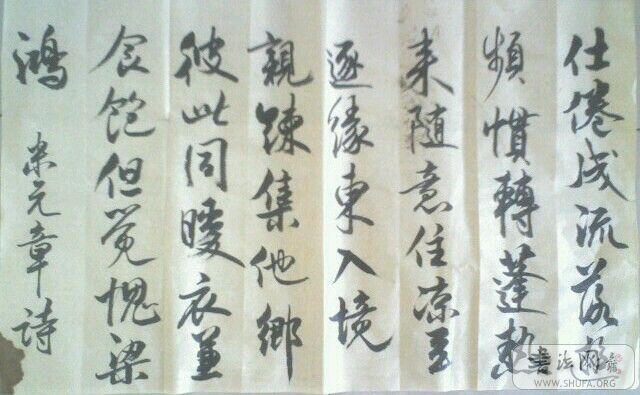 仕倦成流落遊
頻慣轉蓬熱
来隨意住凉至
逐緣東入境
親踈集他鄉
彼此同暖衣兼
食飽但覺愧梁
鴻
米元章詩
書法網
WWW.SHUFA.ORG